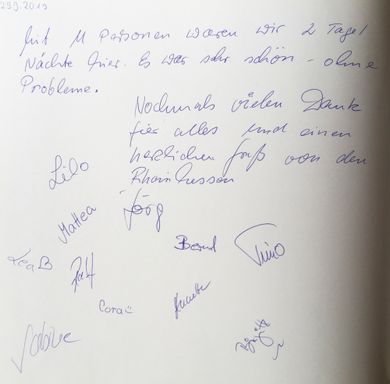 29.9.2019
Mit 11 Personen waren wir 2 Tage/
Nächte hier. Es war sehr schön - ohne
Probleme.
Nochmals vielen Dank
für alles und einen
herzlichen Gruß von den
Rheinhessen
Lilo
Jörg
Mattea
Bernd
Timo
Lea B
Ralf
Cora
Annette
Birgit
Sabine